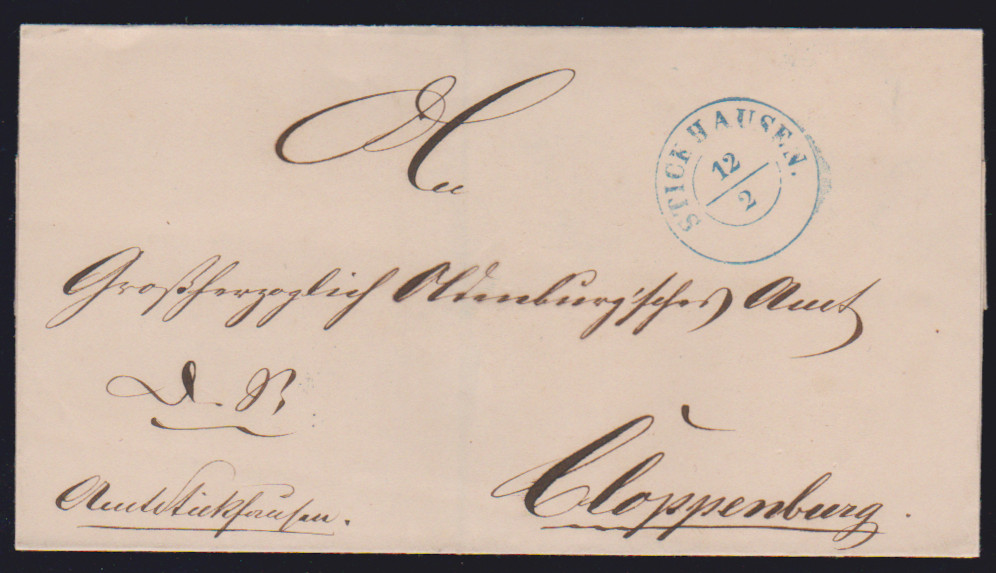 An
STICKHAUSEN.
12
2
Großherzoglich Oldenburg'sches Amt
D. S.
Cloppenburg.
Amt Stickhausen.